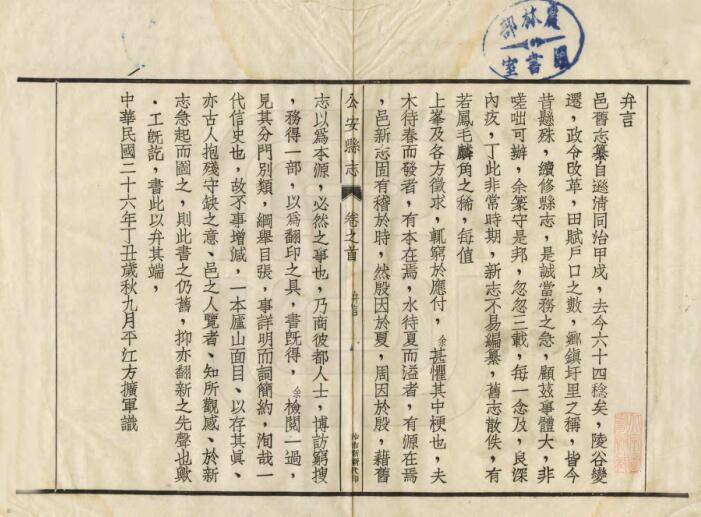 弁言
邑舊志纂自遜清同治甲戌，去今六十四稔矣，陵谷變
遷，政令改革，田賦戶口之數，鄉鎭圩里之稱，皆今
昔懸殊，續修縣志，是誠當務之急，顧茲事體大，非
嗟咄可辦，余篆守是邦，忽忽三載，每一念及，良深
內疚，丁此非常時期，新志不易編纂，舊志散佚，有
若鳳毛麟角之稀，每值
上峯及各方徵求，輒窮於應付，余甚懼其中梗也，夫
木待春而發者，有本在焉，水待夏而溢者，有源在焉
，邑新志固有稽於時，然殷因於夏，周因於殷，藉舊
公安縣志
卷之首
弁言
沙市新新代印
志以爲本源，必然之事也，乃商彼都人士，博訪窮搜
，務得一部，以爲翻印之具，書既得，余檢閱一過，
見其分門別類，綱舉目張，事詳明而詞簡約，洵哉一
代信史也，故不事增減，一本廬山面目、以存其眞、
亦古人抱殘守缺之意、邑之人覽者、知所觀感、於新
志急起而圖之，則此書之仍舊，抑亦翻新之先聲也歟
．工既訖，書此以弁其端，
中華民國二十六年丁丑歲秋九月平江方擴軍識
圖書室